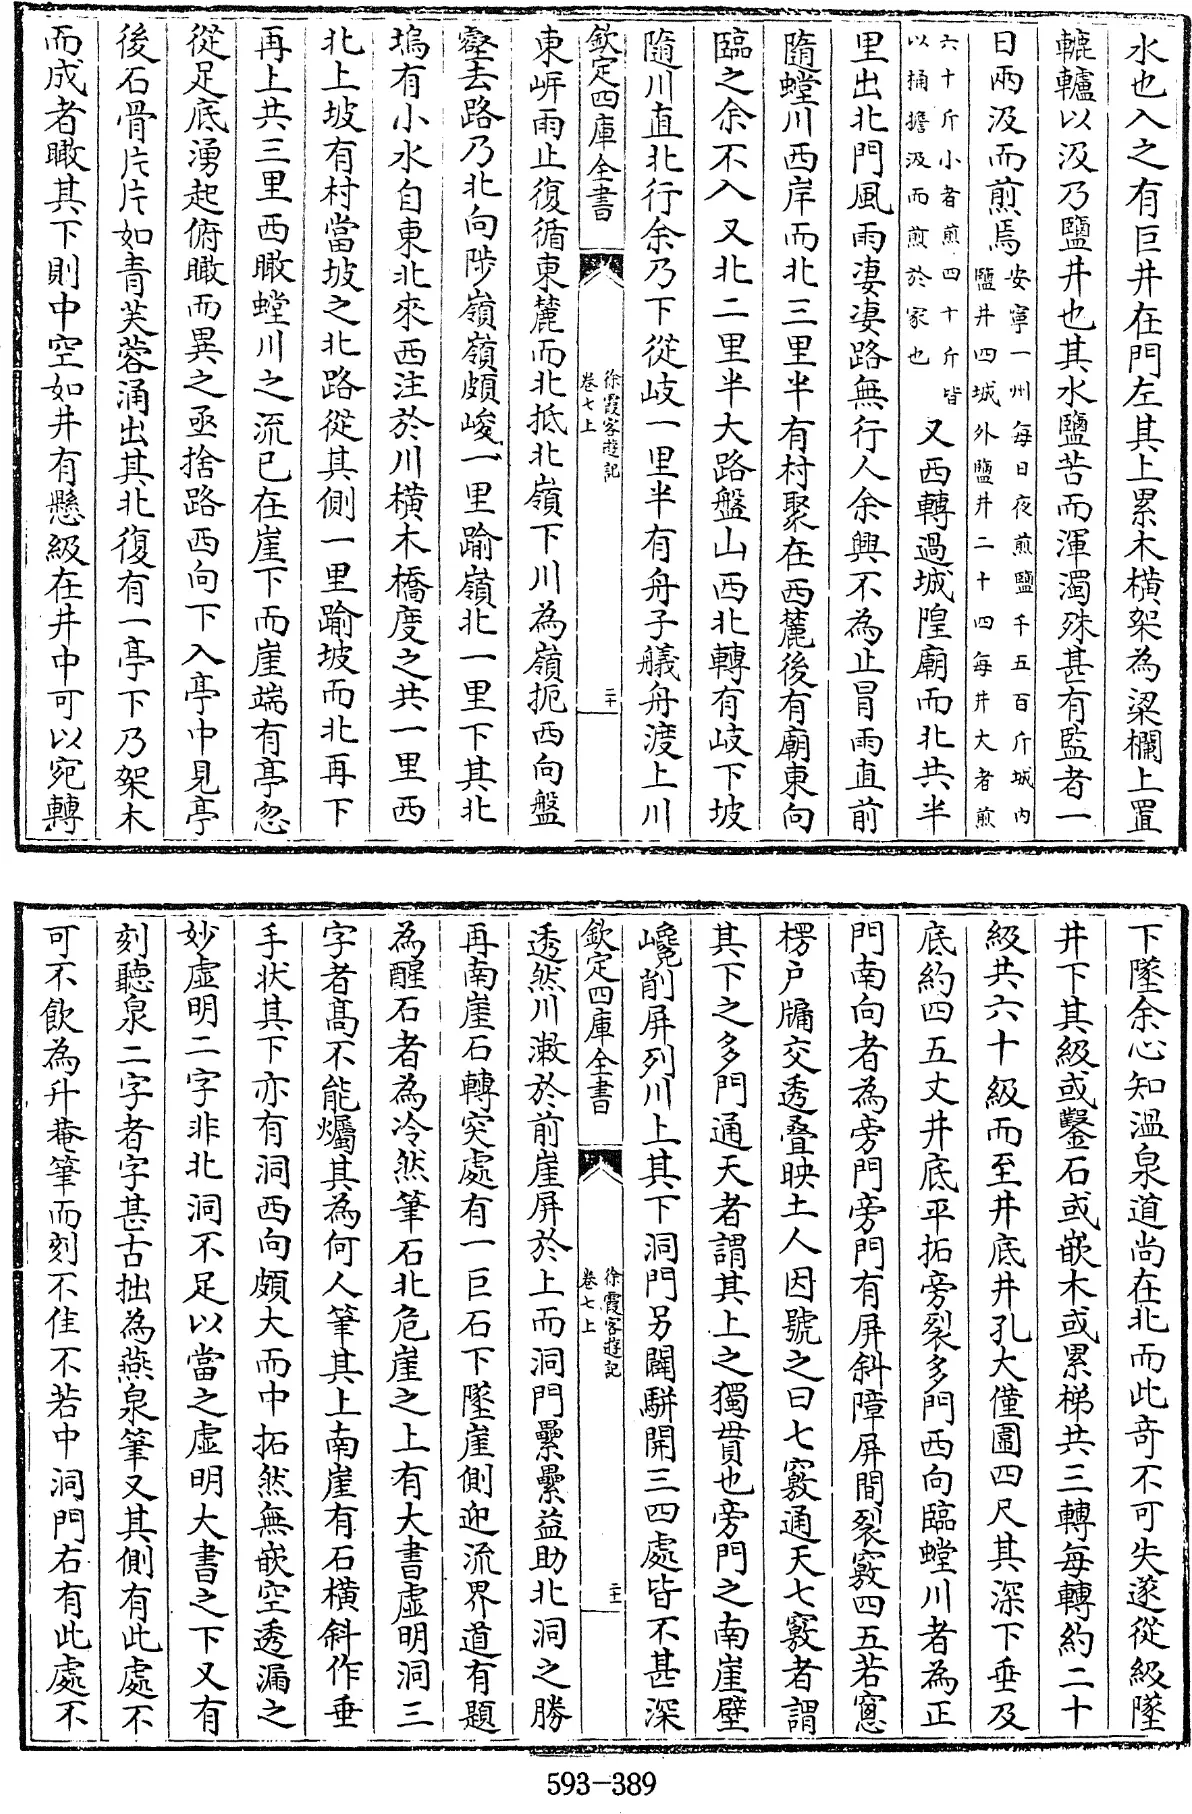 水也入之有巨井在門左其上累木橫架為梁欄上置
轆轤以汲乃鹽井也其水鹽苦而渾濁殊甚有監者一
日兩汲而煎焉安寧一州每日夜煎鹽千五百斤城內
鹽井四城外鹽井二十四每井大者煎
六十斤小者煎四十斤皆
以桶擔汲而煎於家也
又西轉過城隍廟而北共半
里出北門風雨淒淒路無行人余興不為止冒雨直前
隨螳川西岸而北三里半有村聚在西麓後有廟東向
臨之余不入又北二里半大路盤山西北轉有岐下坡
隨川直北行余乃下從岐一里半有舟子艤舟渡上川
欽定四庫全書
徐霞客遊記
卷七上
二十
東岍雨止復循東麓而北抵北嶺下川為嶺扼西向盤
壑去路乃北向陟嶺嶺頗峻一里踰嶺北一里下其北
塢有小水自東北來西注於川橫木橋度之共一里西
北上坡有村當坡之北路從其側一里踰坡而北再下
再上共三里西瞰螳川之流已在崖下而崖端有亭忽
從足底湧起俯瞰而異之亟捨路西向下入亭中見亭
後石骨片片如青芙蓉涌出其北復有一亭下乃架木
而成者瞰其下則中空如井有懸級在井中可以宛轉
下墜余心知溫泉道尚在北而此奇不可失遂從級墜
井下其級或鑿石或嵌木或累梯共三轉每轉約二十
級共六十級而至井底井孔大僅圍四尺其深下垂及
底約四五丈井底平拓旁裂多門西向臨螳川者為正
門南向者為旁門旁門有屏斜障屏間裂竅四五若窓
楞戶牖交透疊映土人因號之曰七竅通天七竅者謂
其下之多門通天者謂其上之獨貫也旁門之南崖壁
巉削屏列川上其下洞門另闢駢開三四處皆不甚深
欽定四庫全書
徐霞客遊記
卷七上
二十一
透然川漱於前崖屏於上而洞門纍纍益助北洞之勝
再南崖石轉突處有一巨石下墜崖側迎流界道有題
為醒石者為冷然筆石北危崖之上有大書虛明洞三
字者高不能矚其為何人筆其上南崖有石橫斜作垂
手狀其下亦有洞西向頗大而中拓然無嵌空透漏之
妙虛明二字非北洞不足以當之虛明大書之下又有
刻聽泉二字者字甚古拙為燕泉筆又其側有此處不
可不飲為升菴筆而刻不佳不若中洞門右有此處不
593-389